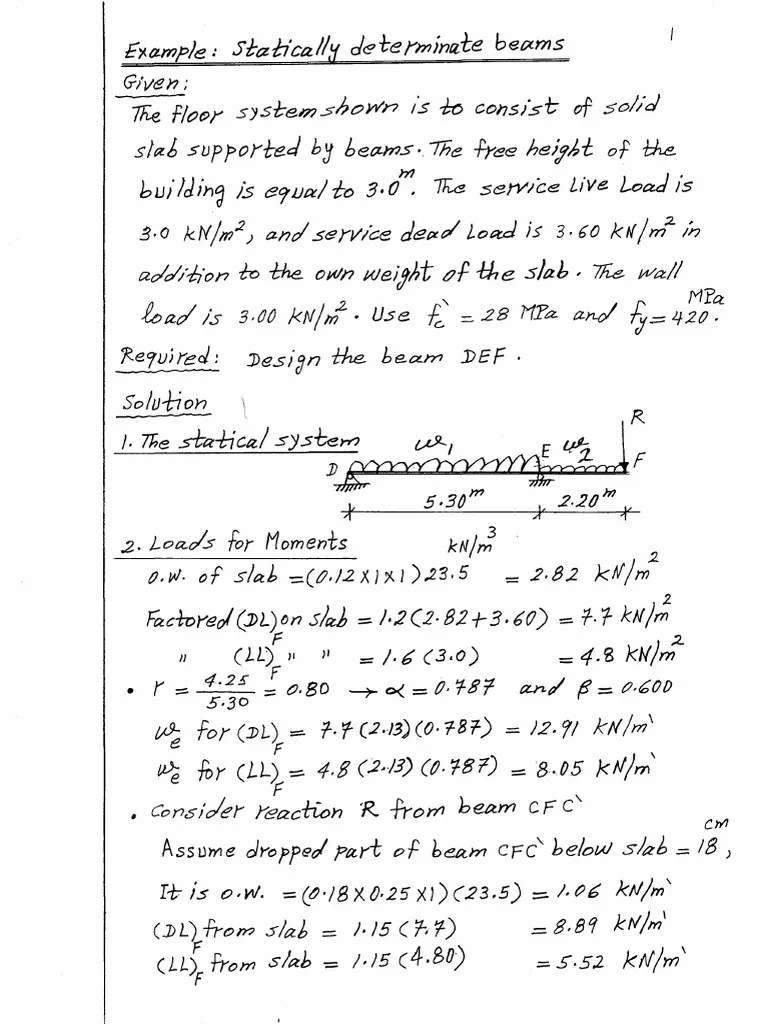 1
Example: Statically determinate beams
Given:
The floor system shown is to consist of solid
slab supported by beams. The free height of the
building is equal to 3.0 m. The service Live Load is
3.0 kN/m², and service dead Load is 3.60 kN/m² in
addition to the own weight of the slab. The wall
load is 3.00 kN/m². Use f'c = 28 MPa and fy = 420 MPa.
Required: Design the beam DEF.
Solution
1. The statical system
R
D we1 E we2 F
5.30 m 2.20 m
2. Loads for Moments kN/m³
o.w. of slab = (0.12 x 1 x 1) 23.5 = 2.82 kN/m²
Factored (DL)F on slab = 1.2 (2.82 + 3.60) = 7.7 kN/m²
" (LL)F " " = 1.6 (3.0) = 4.8 kN/m²
• r = 4.25/5.30 = 0.80 → α = 0.787 and β = 0.600
we for (DL)F = 7.7 (2.13) (0.787) = 12.91 kN/m'
we for (LL)F = 4.8 (2.13) (0.787) = 8.05 kN/m'
• Consider reaction R from beam CFC'
Assume dropped part of beam CFC' below slab = 18 cm,
It is o.w. = (0.18 x 0.25 x 1) (23.5) = 1.06 kN/m'
(DL)F from slab = 1.15 (7.7) = 8.89 kN/m'
(LL)F from slab = 1.15 (4.80) = 5.52 kN/m'